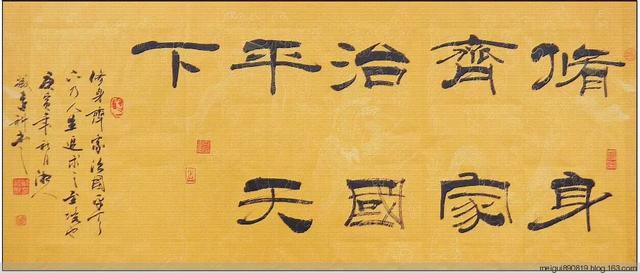 脩身
齊家
治國
平天
下
修身齊家治國平天
下乃人生追求之至境也
庚寅年
meigui890819.blog.163.com